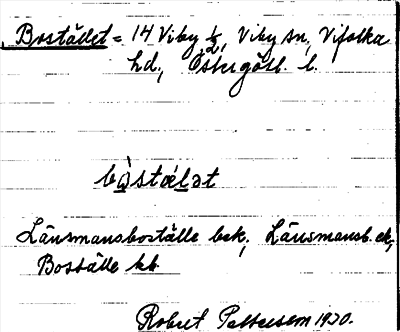 Bostädet = 14 Viby ½, Viby sn, Vifolka
hd, Östergötl. l.
bòstälət
Länsmansboställe bek, Länsmansb. ek,
Boställe kb
Robert Pettersson 1930.